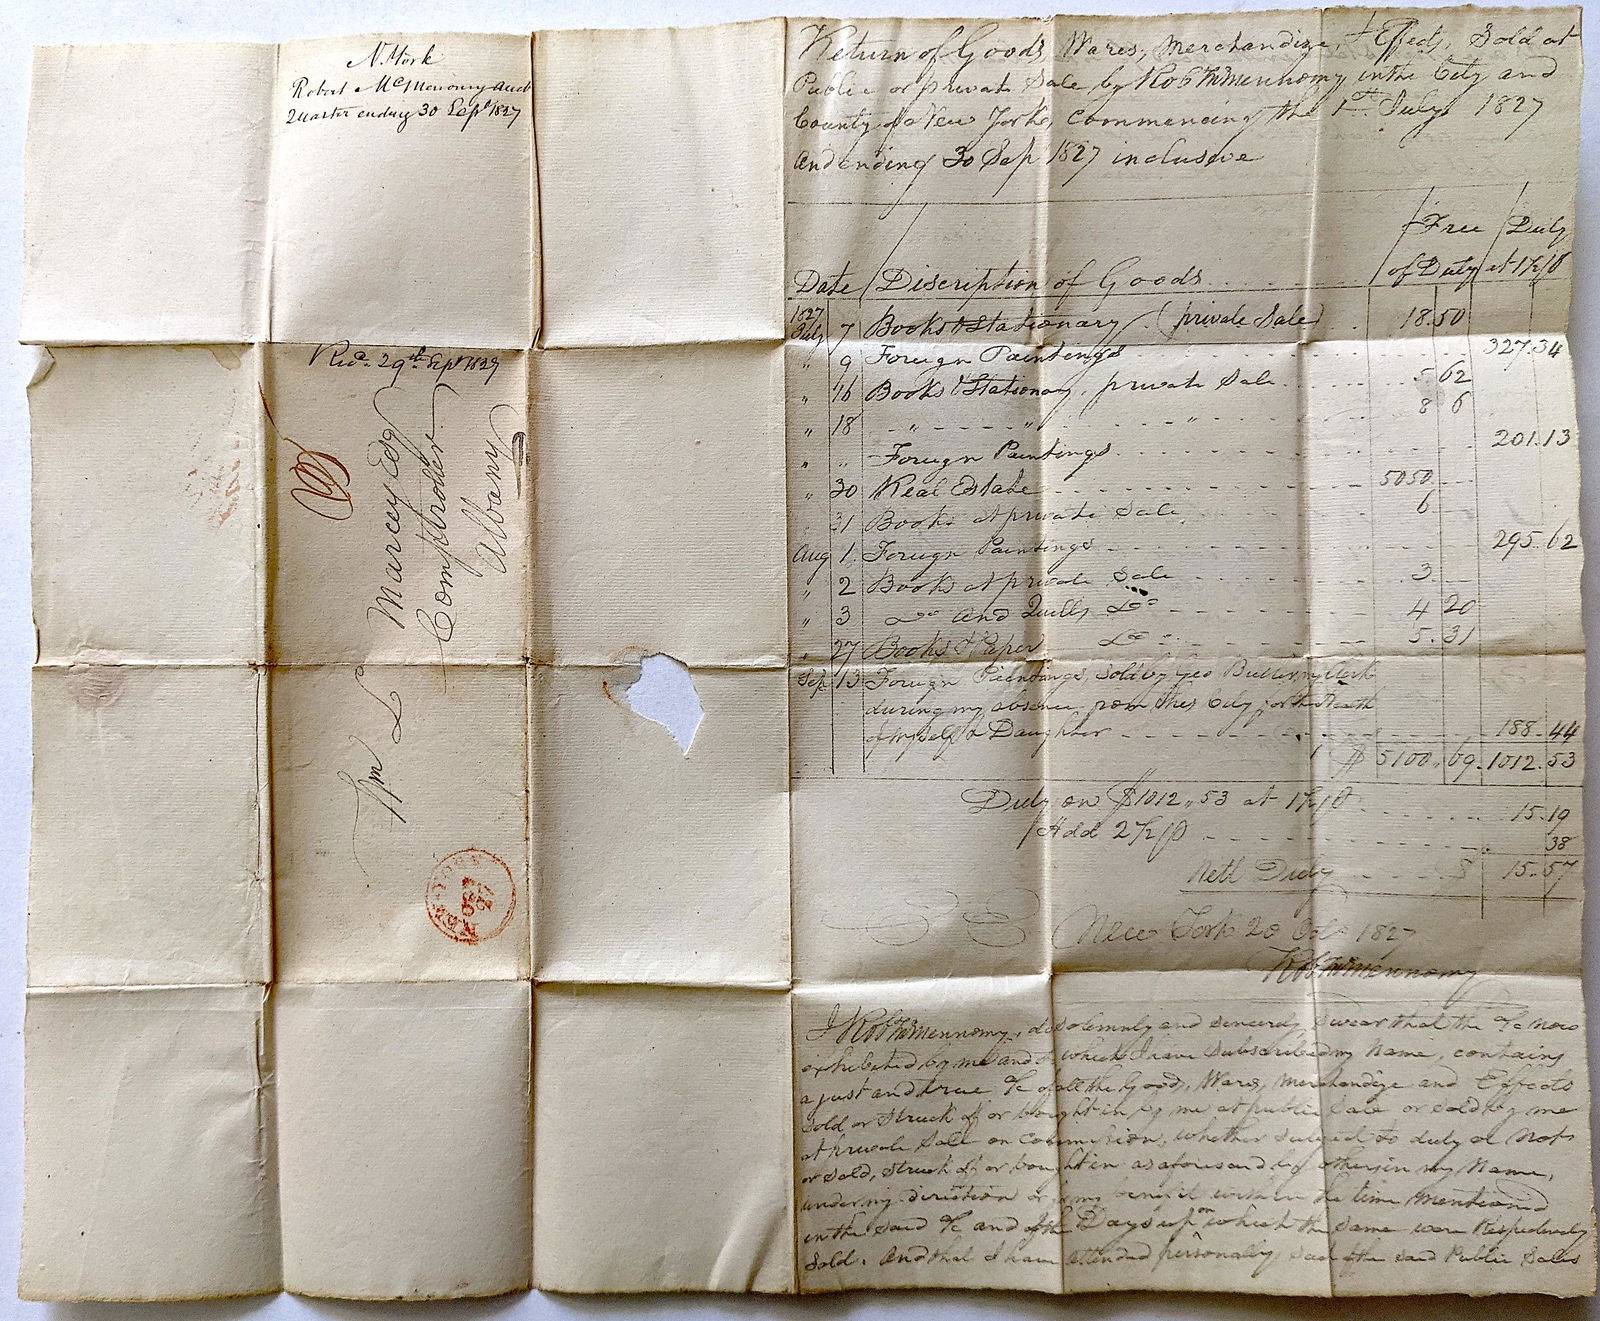 N. York
Robert McMennomy Auct
Quarter ending 30 Sept 1827
Recd. 29th Sept 1827
Wm L Marcey Esq
Comptroller
Albany
NEW-YORK
OCT
Return of Goods, Wares, Merchandize, & Effects, Sold at
Public or private Sale by Robt McMennomy in the City and
County of New York, Commencing the 1st July 1827
and ending 30 Sep 1827 inclusive
Free Duty
Date Discription of Goods of Duty at 1½
1827
July 7 Books & Stationary (private Sale) 18.50
" 9 Foreign Paintings 327.34
" 16 Books & Stationary, private Sale 5.62
" 18 " " " 8 6
" " Foreign Paintings 201.13
" 30 Real Estate 5050
31 Books at private Sale 6
Aug 1 Foreign Paintings 295.62
" 2 Books at private Sale 3
" 3 Do and Quills Do 4 20
" 27 Books & Paper Do 5.31
Sep 13 Foreign Paintings, Sold by Geo Butler, my Clerk
during my absence from this City, for the Health
of myself & Daughter 188.44
$ 5100.69 1012.53
Duty on $1012.53 at 1½ 15.19
Add 2½ 38
Nett Duty $ 15.57
New York 20 Oct 1827
Robt McMennomy
I Robt McMennomy, do solemnly and sincerely swear that the /c now
exhibited by me and to which I have Subscribed my Name, contains
a just and true /c of all the Goods, Wares, Merchandize and Effects
Sold or Struck off or bought in by me at public Sale or Sold by me
at private Sale on Commission, whether subject to duty or not
or Sold, Struck off or bought in as aforesaid by others in my Name,
under my direction or for my benefit within the time mentioned
in the said /c and of the Days upon which the same were Respectively
Sold. And that I have attended personally, such of the said Public Sales